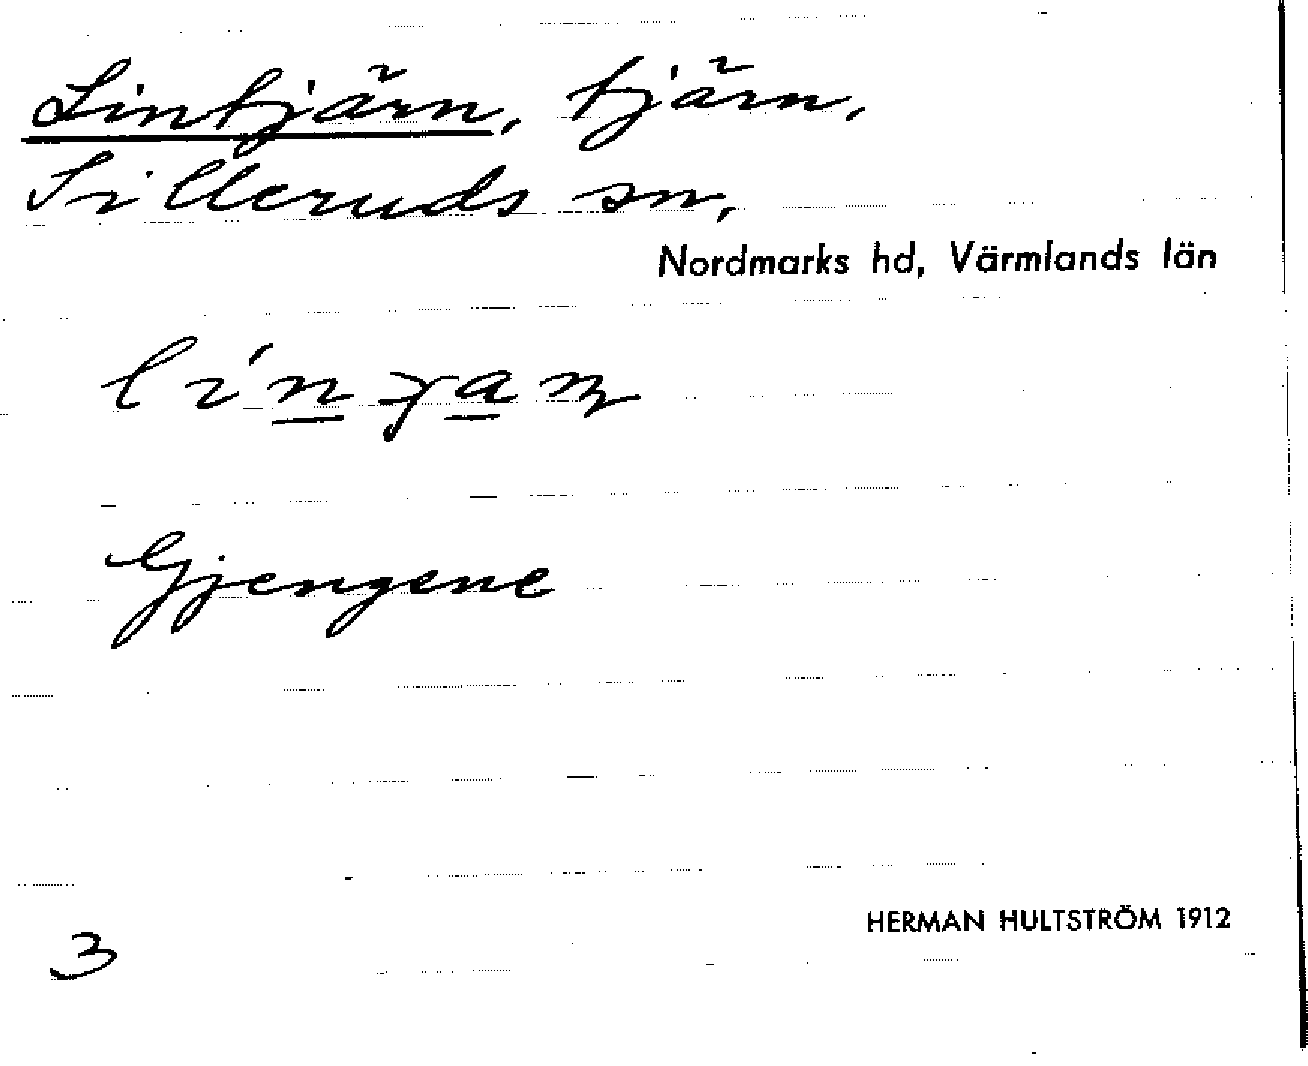 Lintjärn, tjärn,
Silleruds sn,
Nordmarks hd, Värmlands län
Gjengene
HERMAN HULTSTRÖM 1912
3